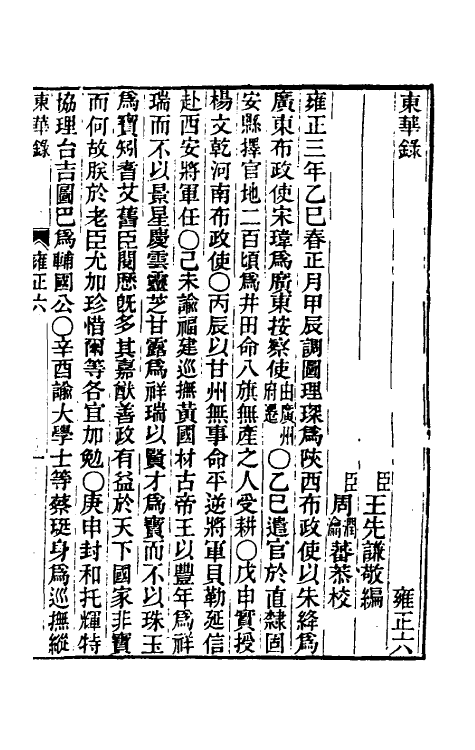 東華錄　雍正六
臣王先謙敬編
臣周潤蕃瀹蕃恭校
雍正三年乙巳春正月甲辰調圖理琛爲陝西布政使以朱絳爲
廣東布政使宋瑋爲廣東按察使由廣州府遷〇乙巳遣官於直隸固
安縣擇官地二百頃爲井田命八旗無產之人受耕〇戊申實授
楊文乾河南布政使〇丙辰以甘州無事命平逆將軍貝勒延信
赴西安將軍任〇己未諭福建巡撫黃國材古帝王以豐年爲祥
瑞而不以景星慶雲靈芝甘露爲祥瑞以賢才爲寶而不以珠玉
爲寶矧耆艾舊臣閱歷旣多其嘉猷善政有益於天下國家非寶
而何故朕於老臣尤加珍惜爾等各宜加勉〇庚申封和托輝特
協理台吉圖巴爲輔國公〇辛酉諭大學士等蔡珽身爲巡撫縱
東華錄　雍正六　一